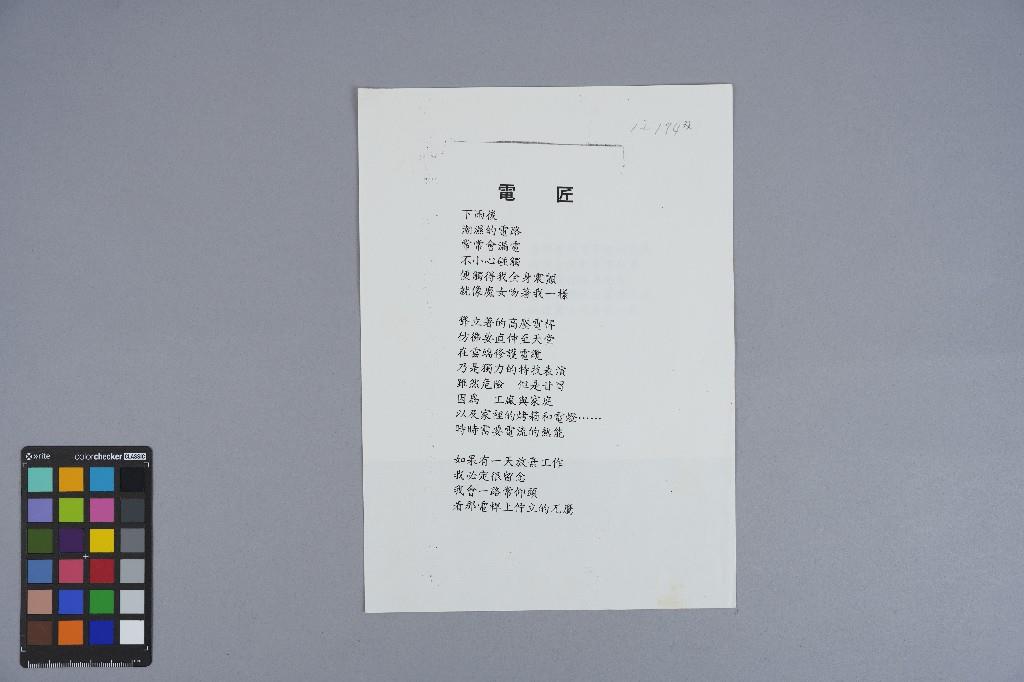 電 匠
下雨後
潮濕的電路
常常會漏電
不小心碰觸
便觸得我全身震顫
就像魔女吻著我一樣
聳立著的高壓電桿
彷彿要直伸至天堂
在雲端修護電纜
乃是獨力的特技表演
雖然危險 但是甘冒
因爲 工廠與家庭
以及家裡的烤箱和電燈……
時時需要電流的熱能
如果有一天放棄工作
我必定很留念
我會一路常仰頭
看那電桿上佇立的兀鷹
x-rite
colorchecker CLASSIC